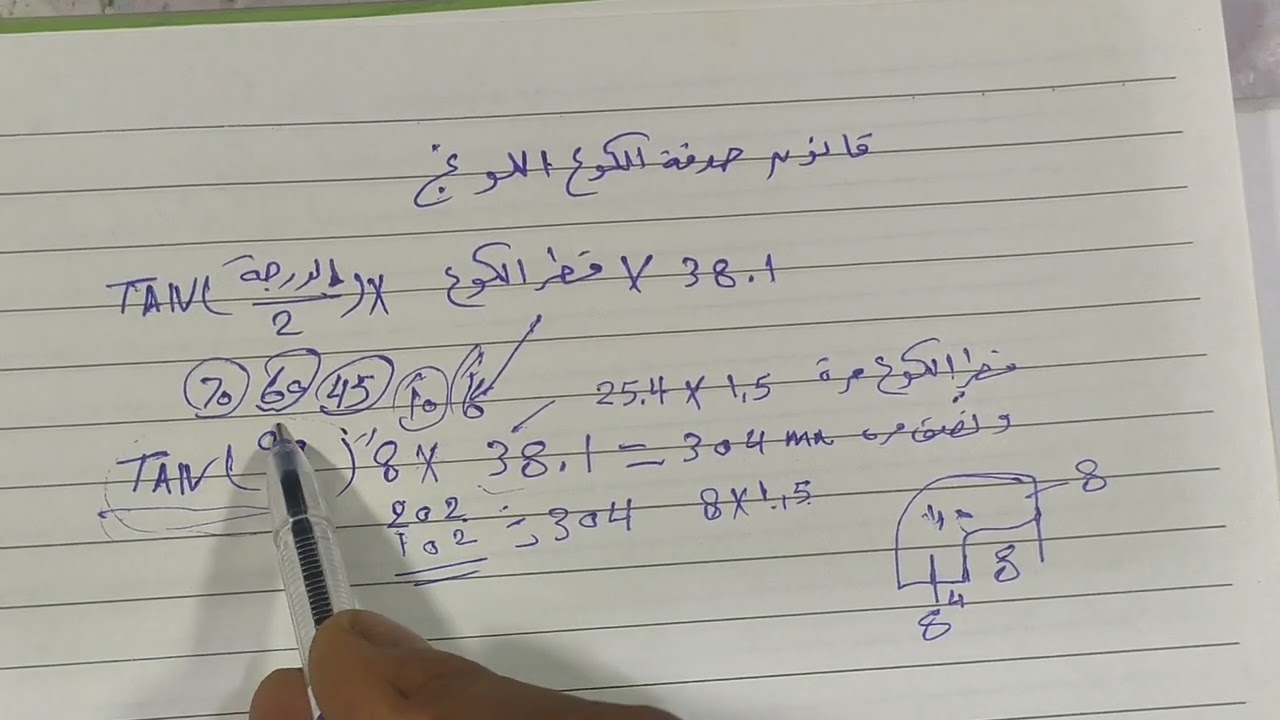 قانون حدفة الكوع اللونج
TAN( الدرجة / 2 ) X قطر الكوع X 38.1
70 60 45
25.4 X 1.5 قطر الكوع مرة
TAN( ) 8 X 38.1 = 304 mm ونصف
202
102 = 304 8 X 1.5
8
8
4
8